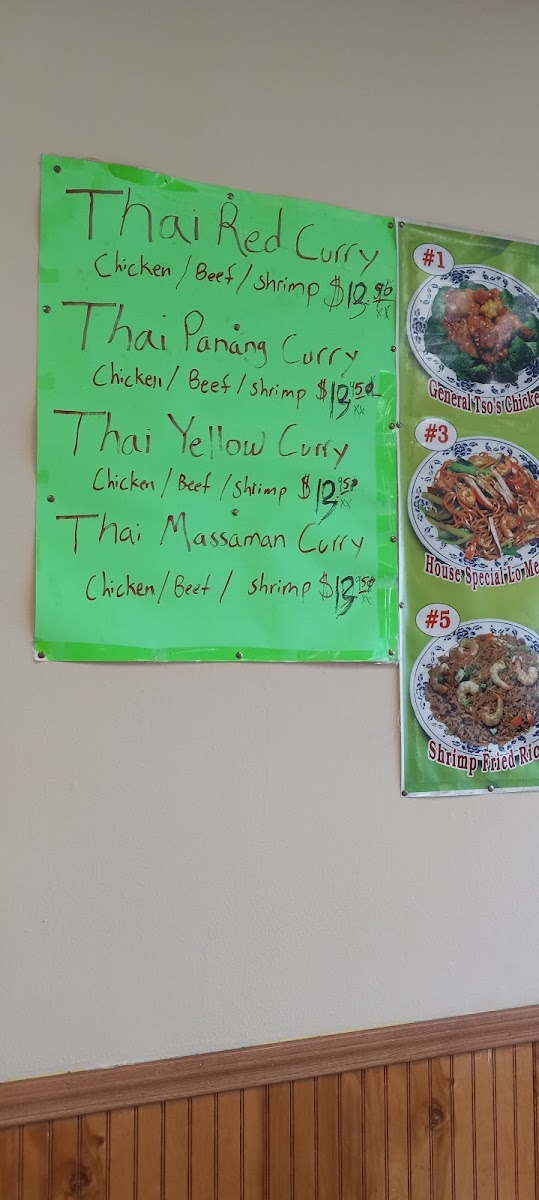 Thai Red Curry
Chicken / Beef / shrimp
Thai Panang Curry
Chicken / Beef / shrimp $13.95
Thai Yellow Curry
Chicken / Beef / shrimp
Thai Massaman Curry
Chicken / Beef / shrimp $13.95
#1
General Tso's Chicke
#3
House Special Lo Me
#5
Shrimp Fried Ric